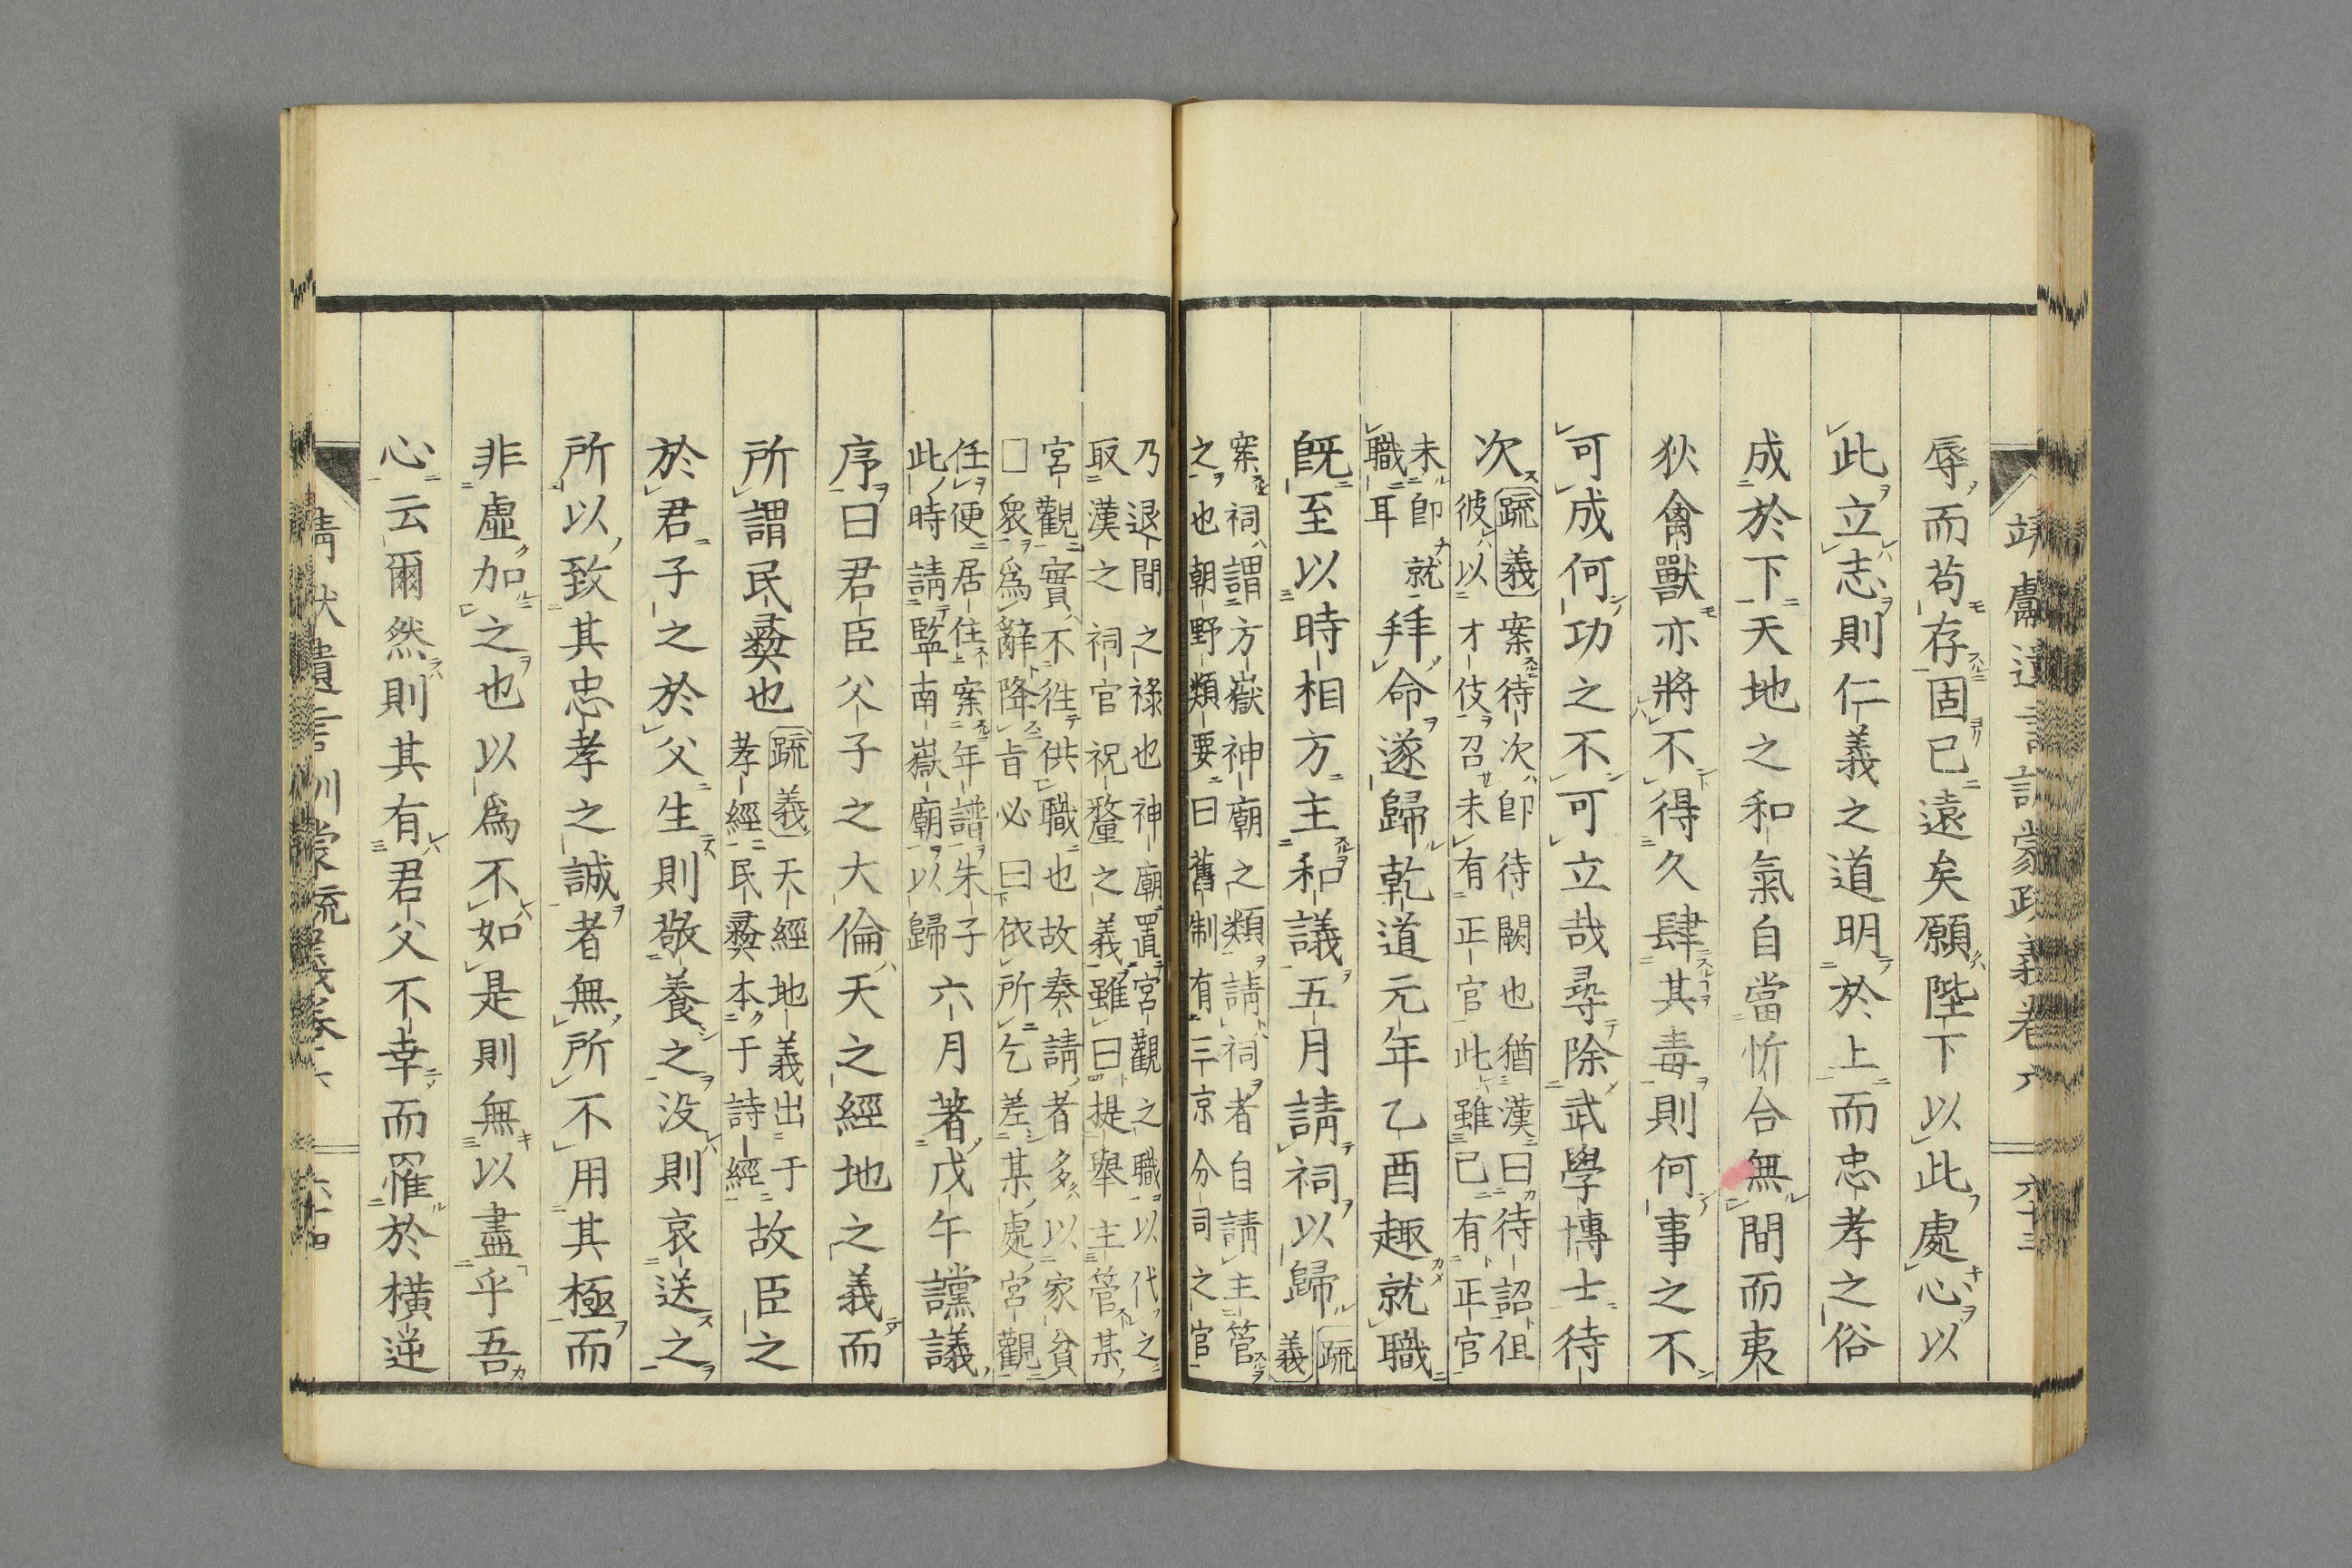 辱而苟存固已遠矣願陛下以此處心以
此立志則仁義之道明於上而忠孝之俗
成於下天地之和氣自當忻合無間而夷
狄禽獸亦將不得久肆其毒則何事之不
可成何功之不可立哉尋除武學博士待
次
疏義
案待次卽待闕也猶漢曰待詔但
彼以才伎召未有正官此雖已有正官
未卽就
職耳
拜命遂歸乾道元年乙酉趣就職
旣至以時相方主和議五月請祠以歸
疏義
案祠謂方嶽神廟之類請祠者自請主管
之也朝野類要曰舊制有三京分司之官
乃退閒之祿也神廟置宮觀之職以代之
取漢之祠官祝釐之義雖曰提舉主管某
宮觀實不往供職也故奏請者多以家貧
□衆爲辭降旨必曰依所乞差某處宮觀
任便居住案年譜朱子
此時請監南嶽廟以歸
六月著戊午讜議
序曰君臣父子之大倫天之經地之義而
所謂民彝也
疏義
天經地義出于
孝經民彝本于詩經
故臣之
於君子之於父生則敬養之没則哀送之
所以致其忠孝之誠者無所不用其極而
非虛加之也以爲不如是則無以盡乎吾
心云爾然則其有君父不幸而罹於橫逆